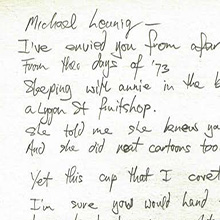 Michael Leunig —
I've envied you from afar
From the days of '73
Sleeping with annie in the b
a Lygon St fruitshop.
She told me she knew you
And she did neat cartoons too
Yet this cup that I covet
I'm sure you would hand